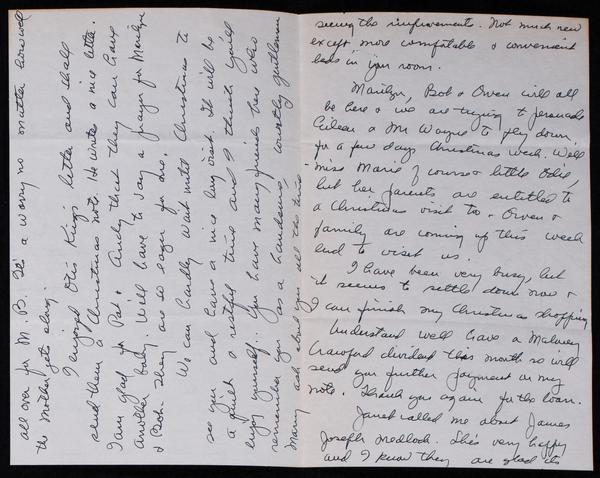 seeing the improvements. Not much new
except more comfortable & convenient
beds in your room.
Marilyn, Bob & Owen will all
be here & we are trying to persuade
Eileen & Mr Wayne to fly down
for a few days Christmas week. We'll
miss Marie of course & little Odie,
but her parents are entitled to
a Christmas visit too. Owen &
family are coming up this week
end to visit us.
I have been very busy, but
it seems to settle down now &
I can finish my Christmas shopping
Understand we'll have a Maloney
Crawford dividend this month so will
send you further payment on my
note. Thank you again for the loan.
Janet called me about James
Joseph Medlock. She's very happy
and I know they are glad it's
all over for M. B. It's a worry no matter how well
the Mother gets along.
I enjoyed Otis King's letter and shall
send them a Christmas note. He writes a nice letter.
I am glad for Pat & Andy that they can have
another baby. Will have to say a prayer for Marilyn
& Bob. They are so eager for one.
We can hardly wait until Christmas to
see you and have a nice long visit. It will be
a quiet & restful time and I think you'll
enjoy yourself. You have many friends here who
remember you as a handsome, courtly gentleman
Many ask about you all the time